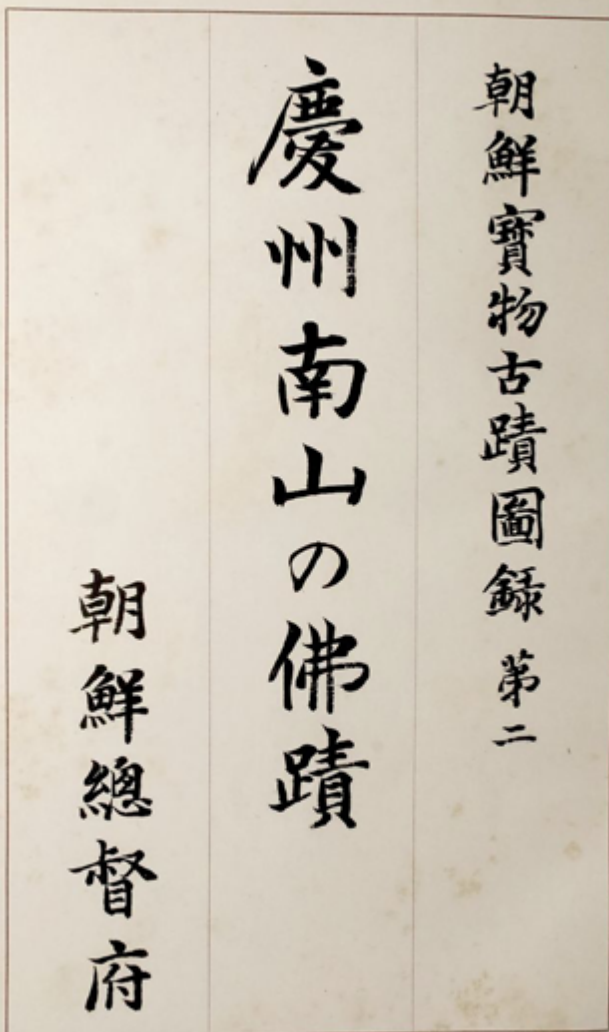 朝鮮寶物古蹟圖錄 第二
慶州南山の佛蹟
朝鮮總督府